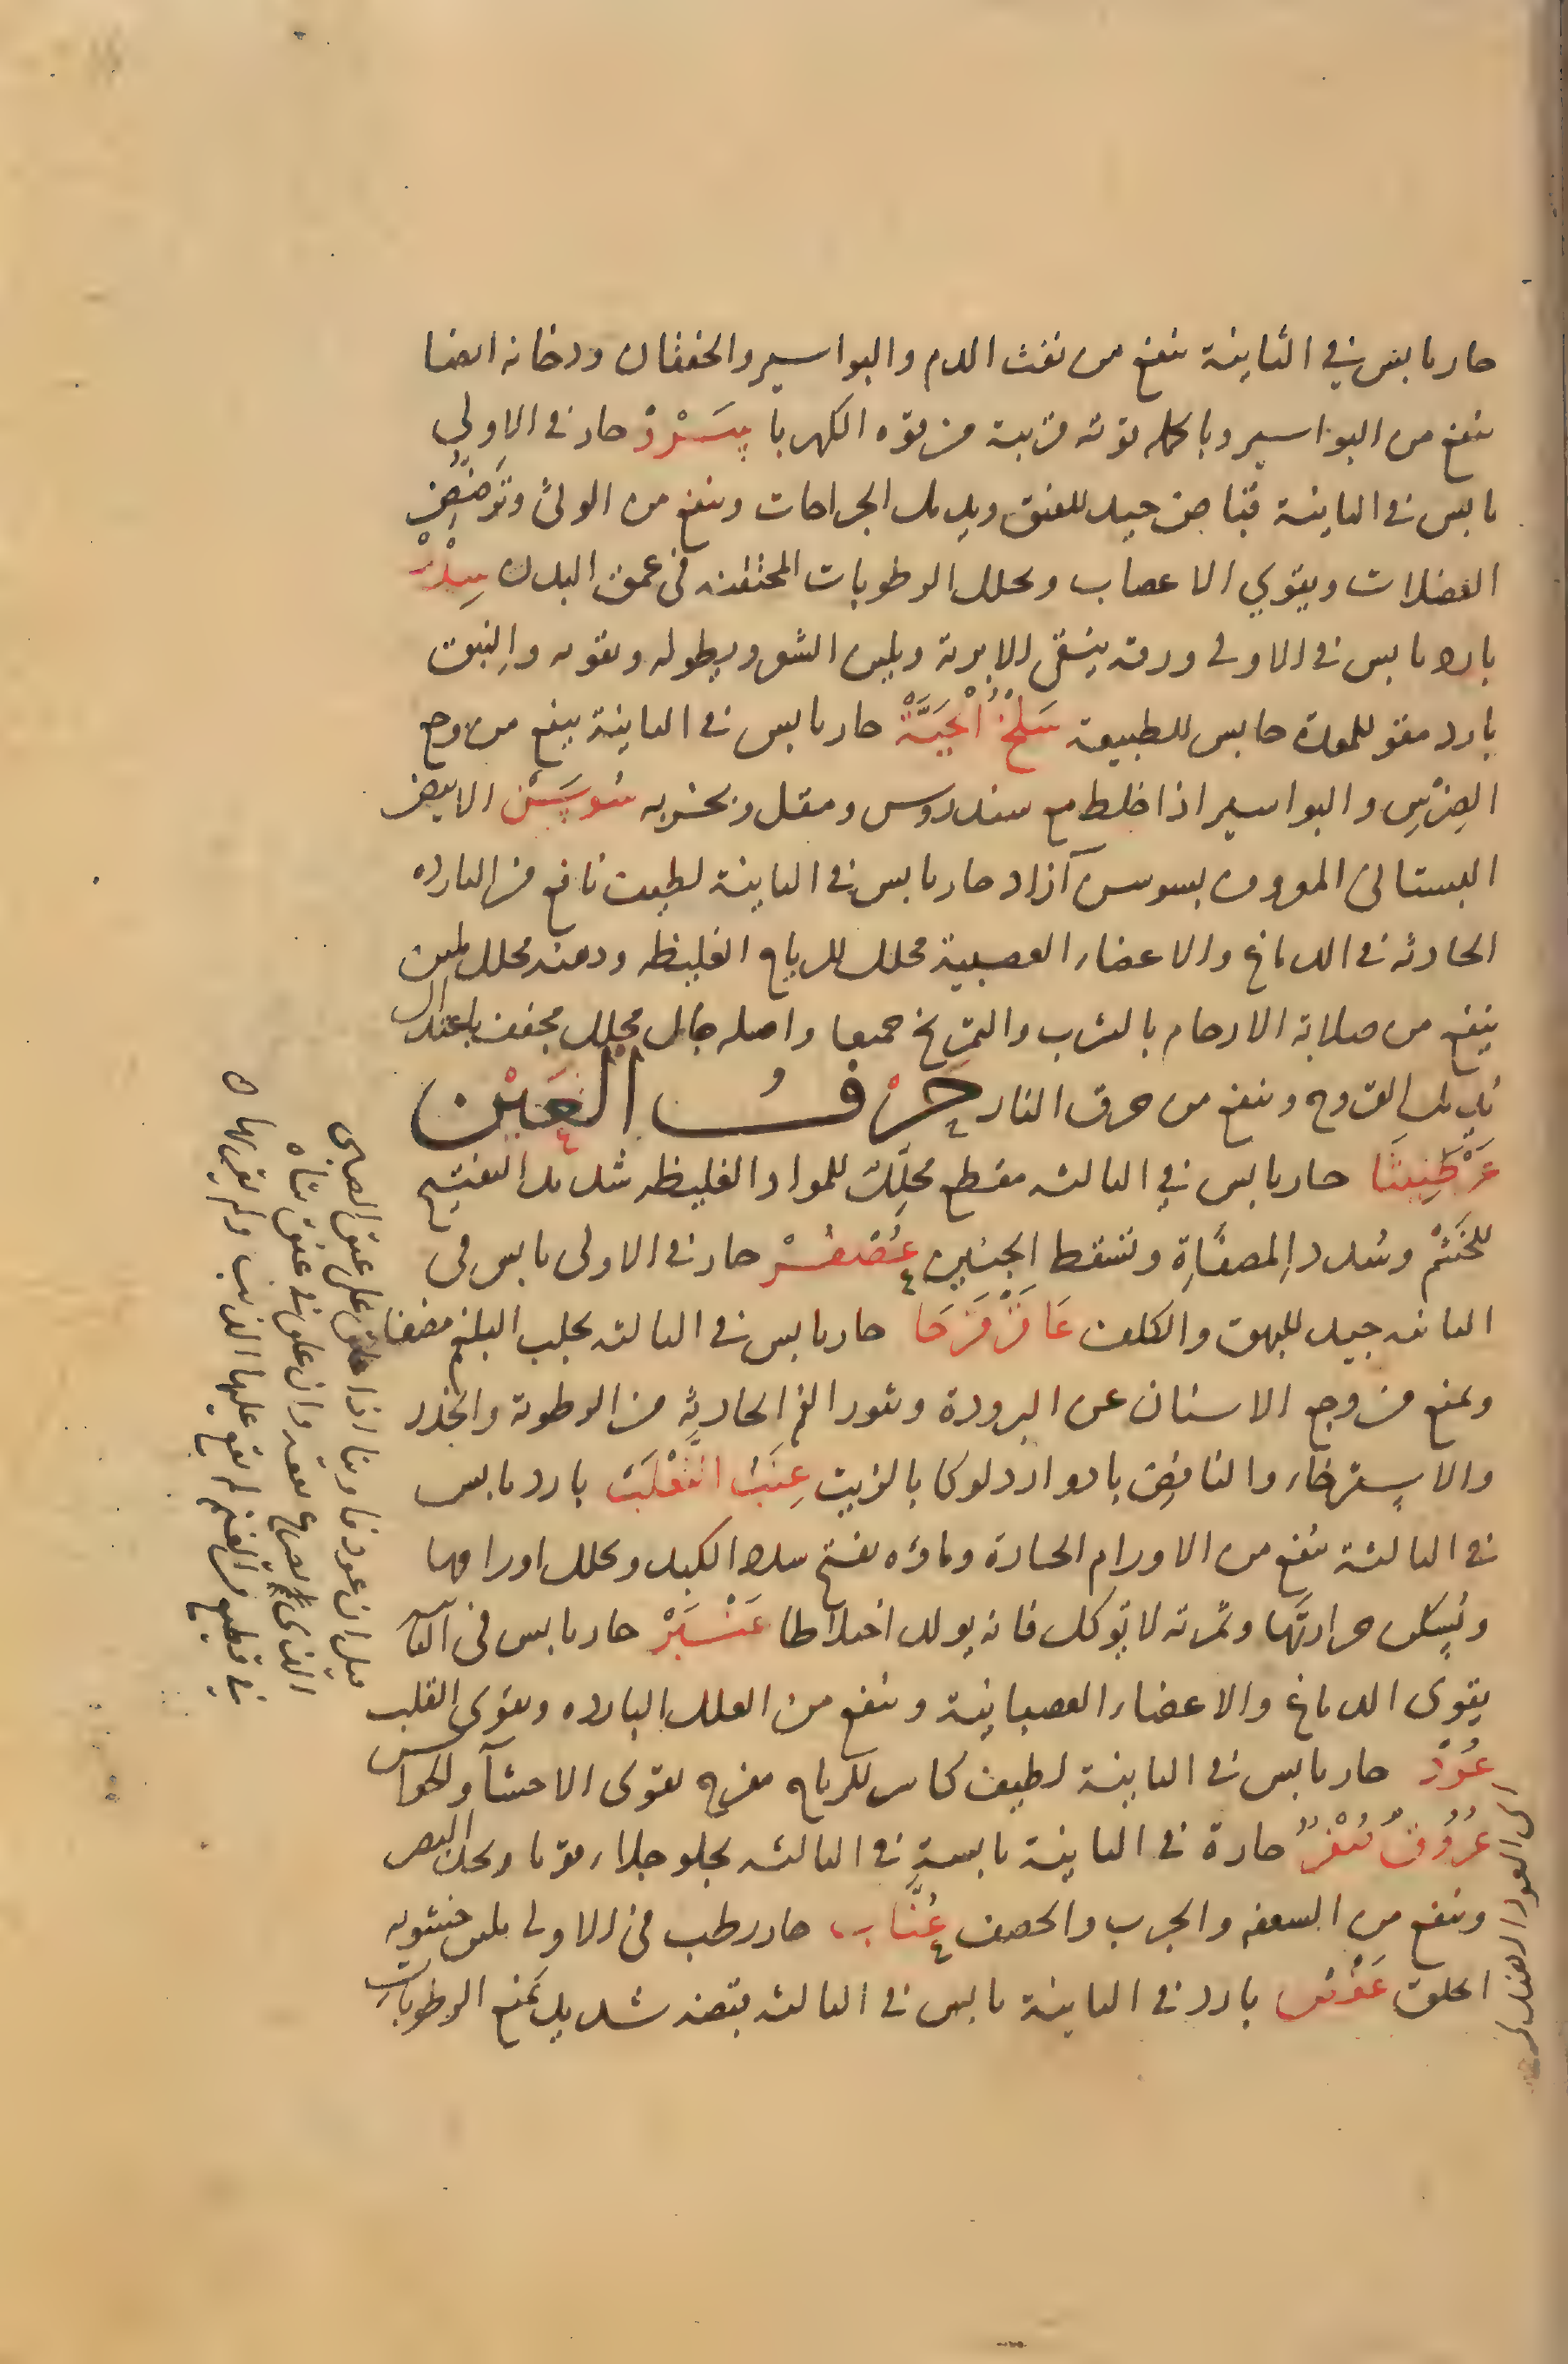 حار يابس في الثانية ينفع من نفث الدم والبواسير والخفقان ودخانه ايضا
ينفع من البواسير وبالجملة قوته قريبة من قوة الكهربا سَرْوٌ حار في الاولي
يابس في الثانية قباض جيد للفتق ويدمل الجراحات وينفع من الوثى وترضض
العضلات ويقوي الاعصاب ويحلل الرطوبات المحتقنه في عمق البدن سِدْرٌ
بارد يابس في الاولى ورقه ينقى الابرية ويلين الشعر ويطوله ويقويه والنبق
بارد مقو للمعدة حابس للطبيعة سَلْخُ الْحَيَّةِ حار يابس في الثانية ينفع من وجع
الضرس والبواسير اذا خلط مع سندروس ومقل وبخر به سُوسَنْ الابيض
البستانى المعروف بسوسن آزاد حار يابس في الثانية لطيف نافع من البارده
الحادثه في الدماغ والاعضاء العصبية محلل للرياح الغليظه ودهنه محلل ملين
ينفع من صلابة الارحام بالشرب والتمريخ جميعا واصله جال محلل مجفف باعتدال
يدمل القروح وينفع من حرق النار حَرْفُ الْعَيْن
عَرْطَنِيثَا حار يابس في الثالثه مقطع محلل للمواد الغليظه شديد التفتيح
للخشم وسدد المصفاة وتسقط الجنين عُصْفُرْ حار في الاولى يابس في
الثانيه جيد للبهق والكلف عَاقَرْقَرْحَا حار يابس في الثالثه يجلب البلغم مضغا
وينفع من وجع الاسنان عن البرودة وبثور الفم الحادثه من الرطوبة والخدر
والاسترخاء والنافض بادوار دلوكا بالزيت عِنَبُ الثَّعْلَبْ بارد يابس
في الثالثة ينفع من الاورام الحارة وماؤه يفتح سدد الكبد ويحلل اورامها
ويسكن حرارتها وثمرته لا توكل فانه يولد اخلاطا عَنْبَرْ حار يابس في الثا
يقوى الدماغ والاعضاء العصبانية وينفع من العلل البارده ويقوى القلب
عُوْدٌ حار يابس في الثانية لطيف كاسر للرياح مفرح يقوى الاحشآ والحواس
عُرُوقٌ صُفْرٌ حارة في الثانية يابسة في الثالثه يجلو جلاء قويا ويحد البصر
وينفع من السعفه والجرب والحصف عُنَّاب حار رطب في الاولى يلين خشونه
الحلق عَفْصٌ بارد في الثانية يابس في الثالثه بقبضه شديد يمنع الرطوبات
قيل ان عود فاوينا اذا علق على عنق الصابى
الذى يصرع يفعه وان علق في عنق شاه
في قطيع من الغنم لم يقع عليها الذئب ولم يقربها